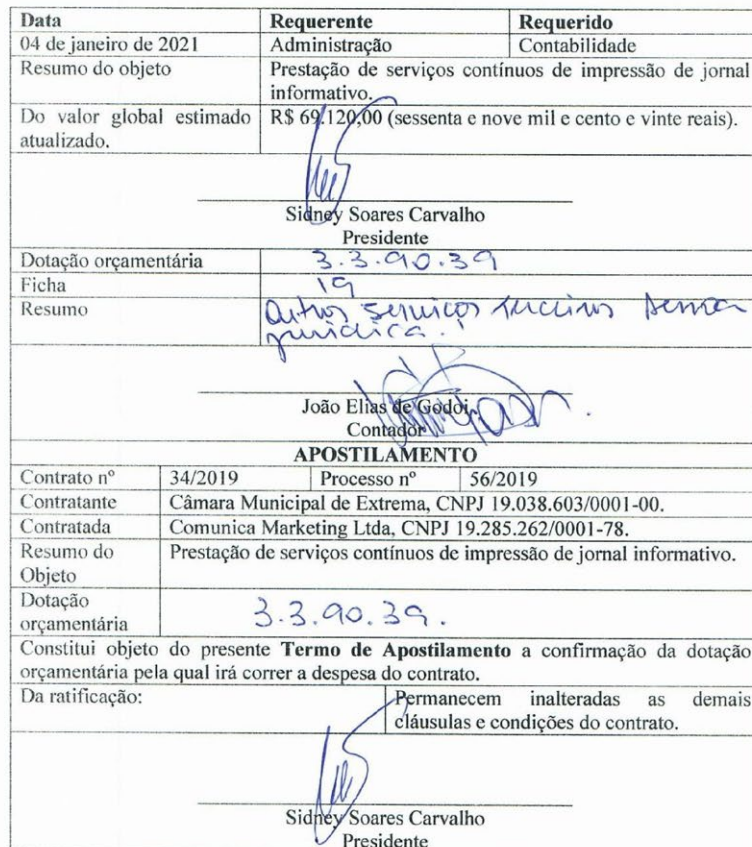 Data Requerente Requerido
04 de janeiro de 2021 Administração Contabilidade
Resumo do objeto Prestação de serviços contínuos de impressão de jornal
informativo.
Do valor global estimado R$ 69.120,00 (sessenta e nove mil e cento e vinte reais).
atualizado.
Sidney Soares Carvalho
Presidente
Dotação orçamentária 3.3.90.39
Ficha 19
Resumo Outros serviços
jurídica.
João Elias de Godoi
Contador
APOSTILAMENTO
Contrato nº 34/2019 Processo nº 56/2019
Contratante Câmara Municipal de Extrema, CNPJ 19.038.603/0001-00.
Contratada Comunica Marketing Ltda, CNPJ 19.285.262/0001-78.
Resumo do Prestação de serviços contínuos de impressão de jornal informativo.
Objeto
Dotação
orçamentária 3.3.90.39.
Constitui objeto do presente Termo de Apostilamento a confirmação da dotação
orçamentária pela qual irá correr a despesa do contrato.
Da ratificação: Permanecem inalteradas as demais
cláusulas e condições do contrato.
Sidney Soares Carvalho
Presidente